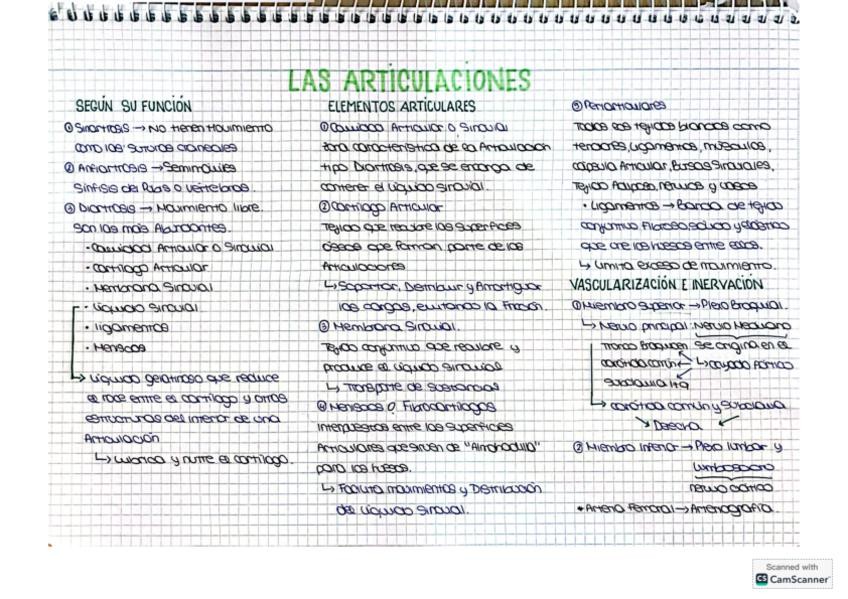 LAS ARTICULACIONES
SEGÚN SU FUNCIÓN
① Sinartrosis → No tienen Movimiento
como las suturas craneales
② Anfiartrosis → Semimóviles
Sínfisis del Pubis o vértebras.
③ Diartrosis → Movimiento libre.
Son las más Abundantes.
• Cavidad Articular o Sinovial
• Cartílago Articular
• Membrana Sinovial
• Líquido Sinovial
• Ligamentos
• Meniscos
↳ Líquido gelatinoso que reduce
el roce entre el cartílago y otras
estructuras del interior de una
Articulación
↳ Lubrica y nutre el cartílago.
ELEMENTOS ARTICULARES
① Cavidad Articular o Sinovial
Zona característica de la Articulación
tipo Diartrosis, que se encarga de
contener el líquido sinovial.
② Cartílago Articular
Tejido que recubre las superficies
óseas que forman parte de las
Articulaciones
↳ Soportar, Distribuir y Amortiguar
las cargas, evitando la fricción.
③ Membrana Sinovial.
Tejido conjuntivo que recubre y
produce el líquido sinovial
↳ Transporte de sustancias
④ Meniscos o Fibrocartílagos
Interpuestos entre las superficies
Articulares que sirven de "Almohadilla"
para los huesos.
↳ Facilita movimientos y Distribución
del Líquido Sinovial.
⑤ Periarticulares
Todos los tejidos blandos como
tendones, ligamentos, músculos,
cápsula Articular, Bursas Sinoviales,
Tejido Adiposo, nervios y vasos
• Ligamentos → Banda de tejido
conjuntivo Fibroso sólido y elástico
que une los huesos entre ellos.
↳ Limita exceso de movimiento.
VASCULARIZACIÓN E INERVACIÓN
① Miembro Superior → Plexo Braquial.
↳ Nervio principal: Nervio Mediano
Tronco Braquicef. Se origina en el
carótida común ↳ cayado Aórtico
Subclavia
↳ carótida común y Subclavia
Derecha
② Miembro Inferior → Plexo lumbar y
lumbosacro
nervio ciático
• Arteria Femoral → Arteriografía.
Scanned with
CS CamScanner